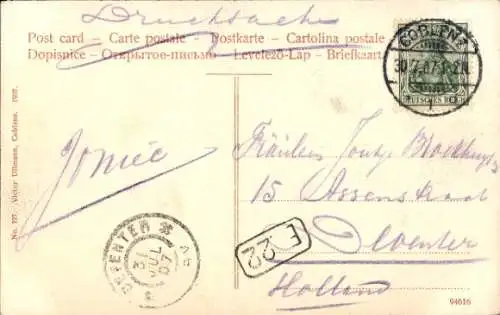 Drucksache
Post card — Carte postale — Postkarte — Cartolina postale
Dopisnice — Открытое-письмо — Levelező-Lap — Briefkaart
COBLENZ
30.7.07
DEUTSCHES REICH
Fräulein
15 Assenstraat
Deventer
Holland
DEVENTER
31 JUL 07
E 22
No. 127. Victor Ullmann, Coblenz. 1907.
94616